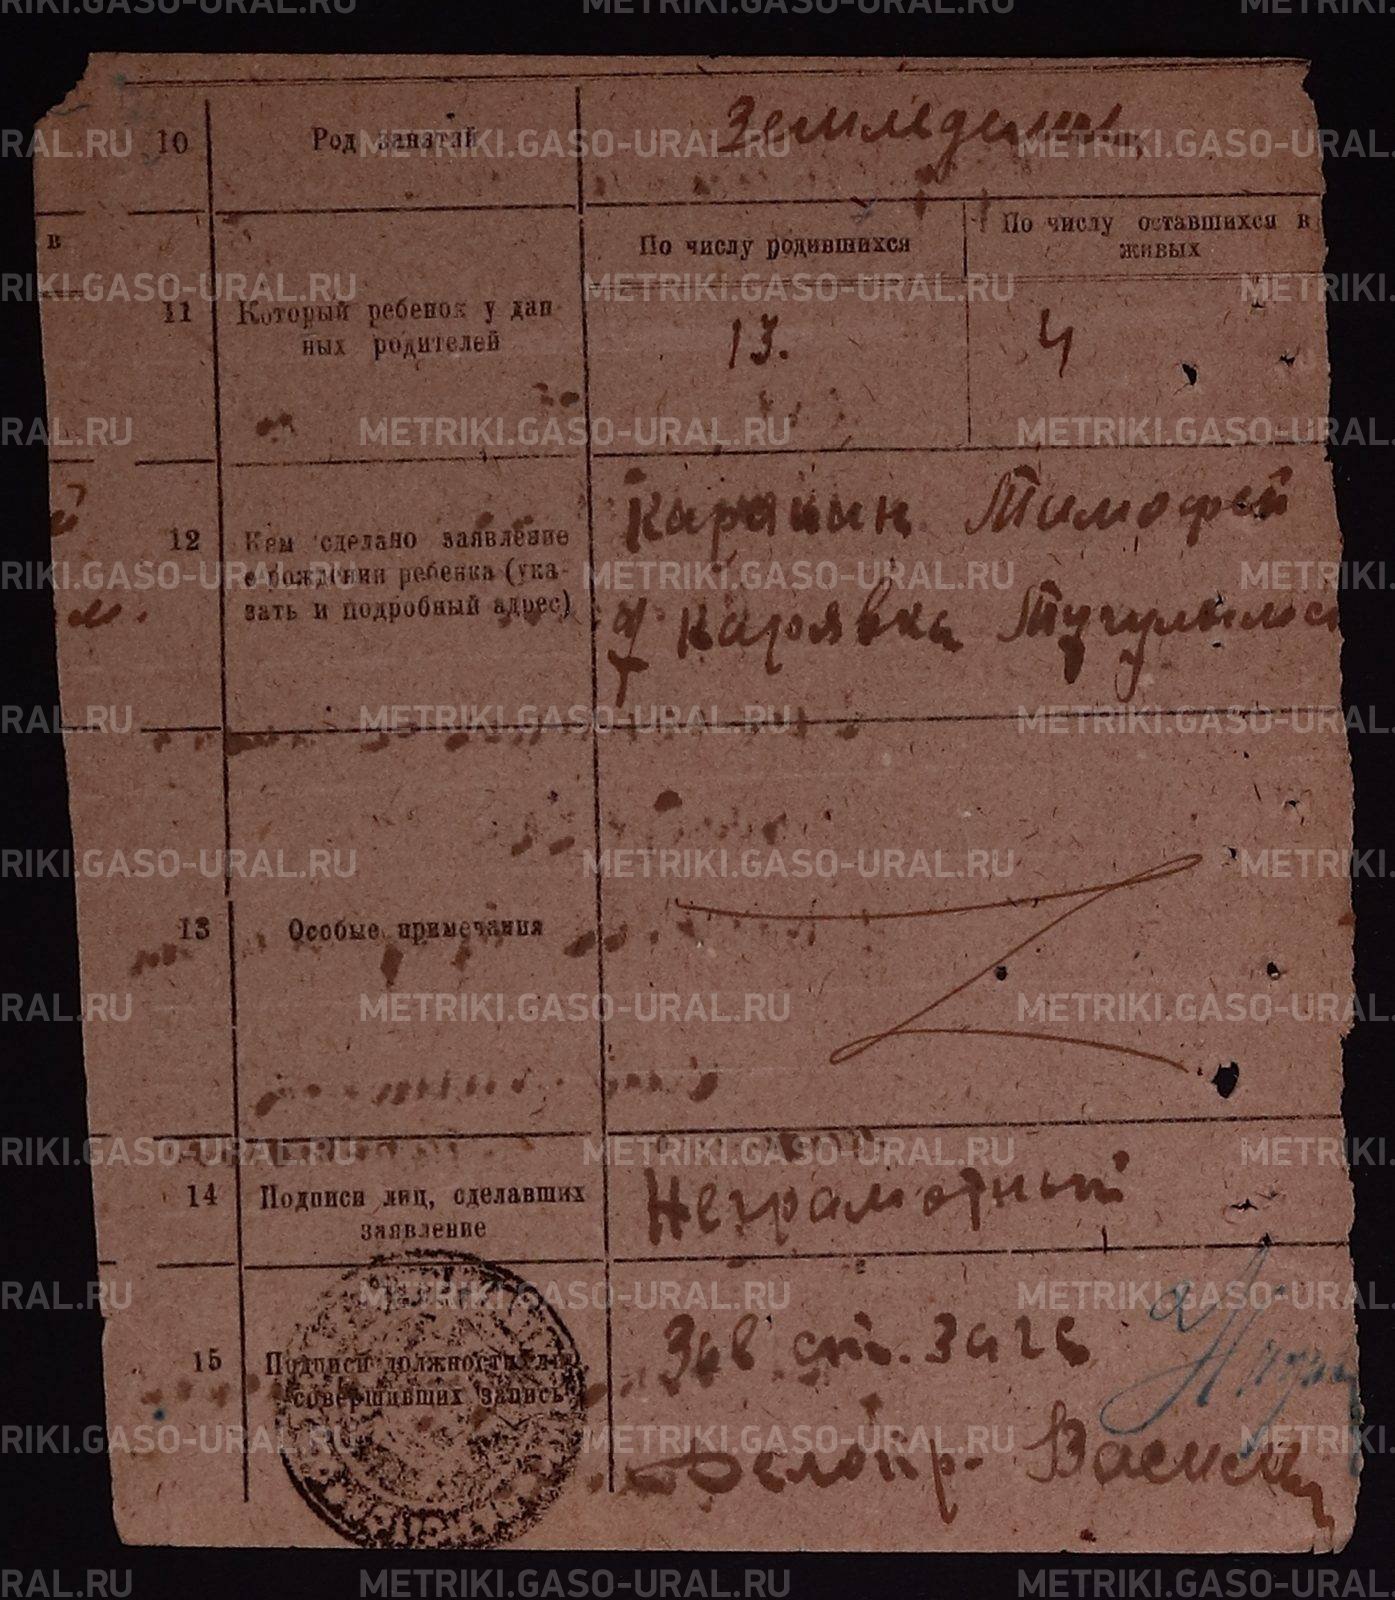 10 Род занятий Земледелец
в
По числу родившихся
По числу оставшихся в живых
11 Который ребенок у данных родителей
13.
4
12 Кем сделано заявление о рождении ребенка (указать и подробный адрес)
Тимофей
Карявка
13 Особые примечания
14 Подписи лиц, сделавших заявление
Неграмотный
15 Подписи должностн. лиц, совершивших запись
Зав ст. Загс
Делопр.
METRIKI.GASO-URAL.RU